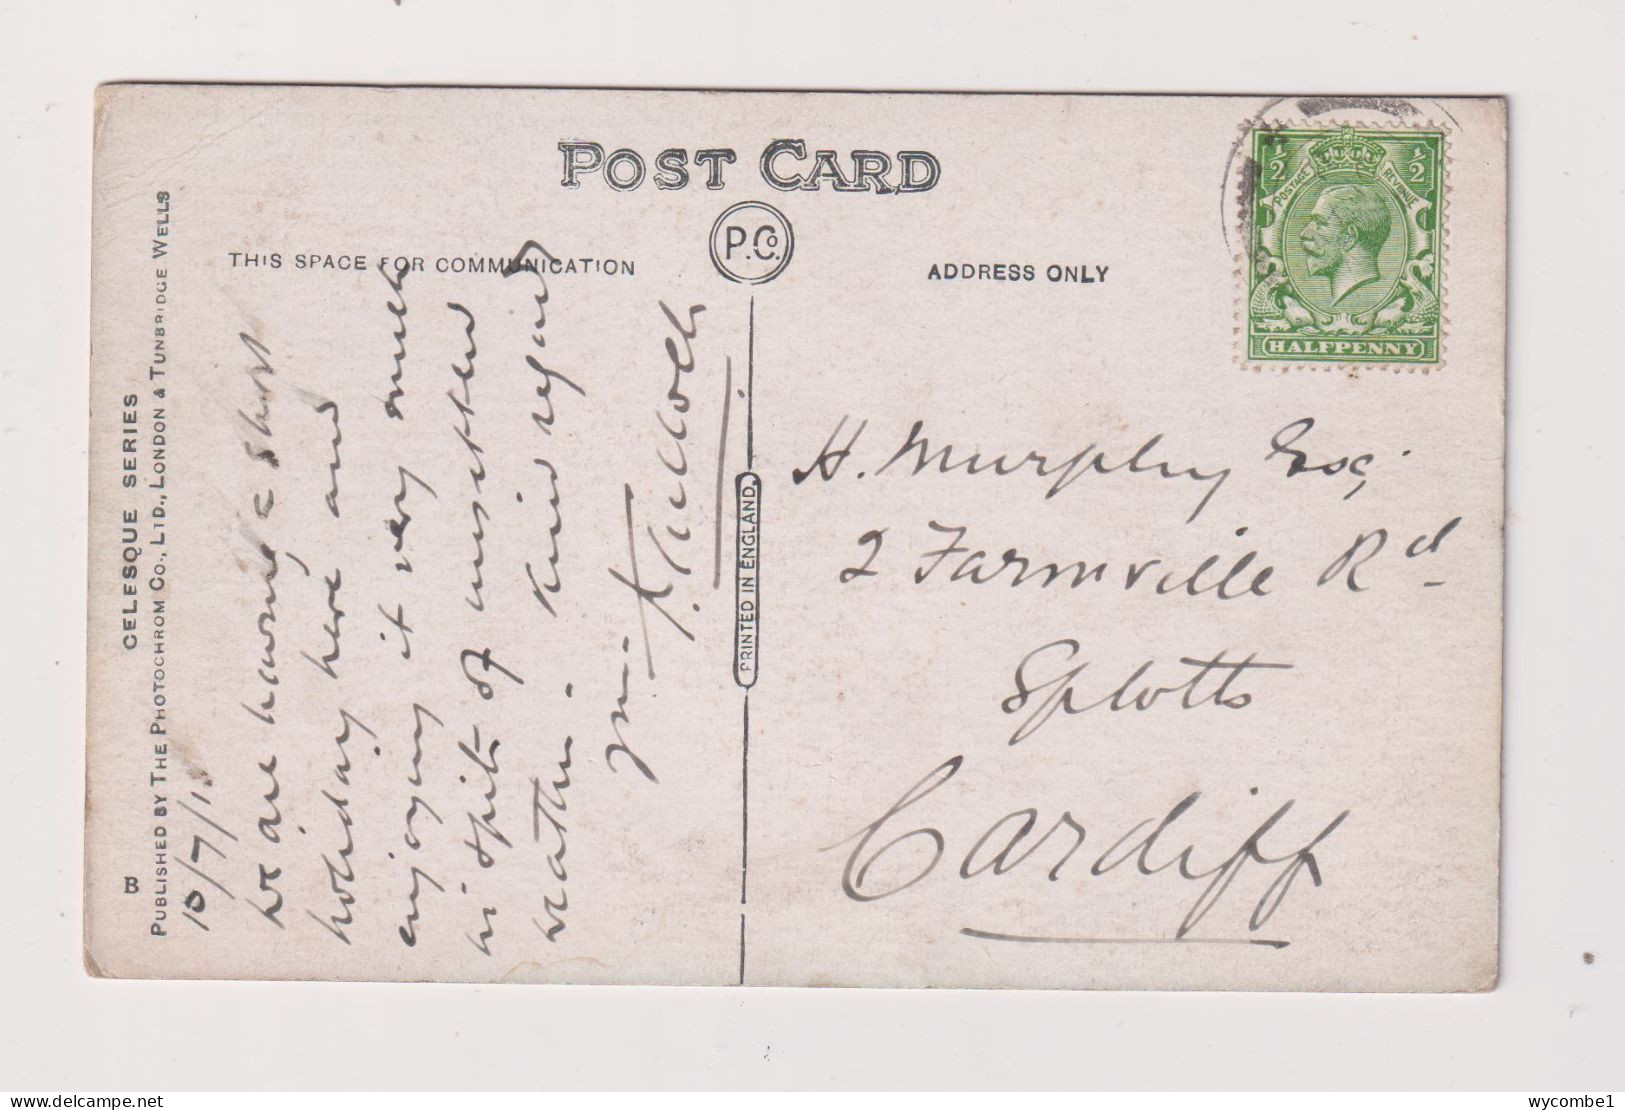 POST CARD
P.Co.
THIS SPACE FOR COMMUNICATION
ADDRESS ONLY
½ ½
POSTAGE REVENUE
HALFPENNY
CELESQUE SERIES
PUBLISHED BY THE PHOTOCHROM CO., LTD., LONDON & TUNBRIDGE WELLS
B
PRINTED IN ENGLAND.
10/7/1
We are having a short
holiday here and
enjoying it very much
in spite of unsettled
weather. Kind regards
H. Murphy Esq;
2 Farmville Rd
Splotts
Cardiff
wycombe1